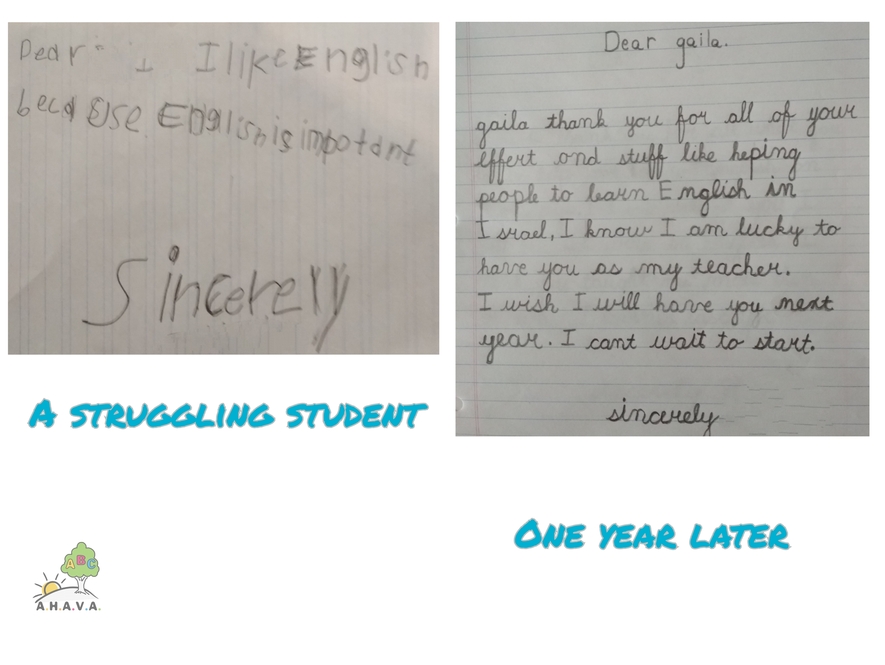 Dear I I like English
becaUse English is impotant
Sincerely
A STRUGGLING STUDENT
Dear gaila.
gaila thank you for all of your
effert and stuff like heping
people to learn English in
Israel, I know I am lucky to
have you as my teacher.
I wish I will have you next
year. I cant wait to start.
sincerely
ONE YEAR LATER
ABC
A.H.A.V.A.